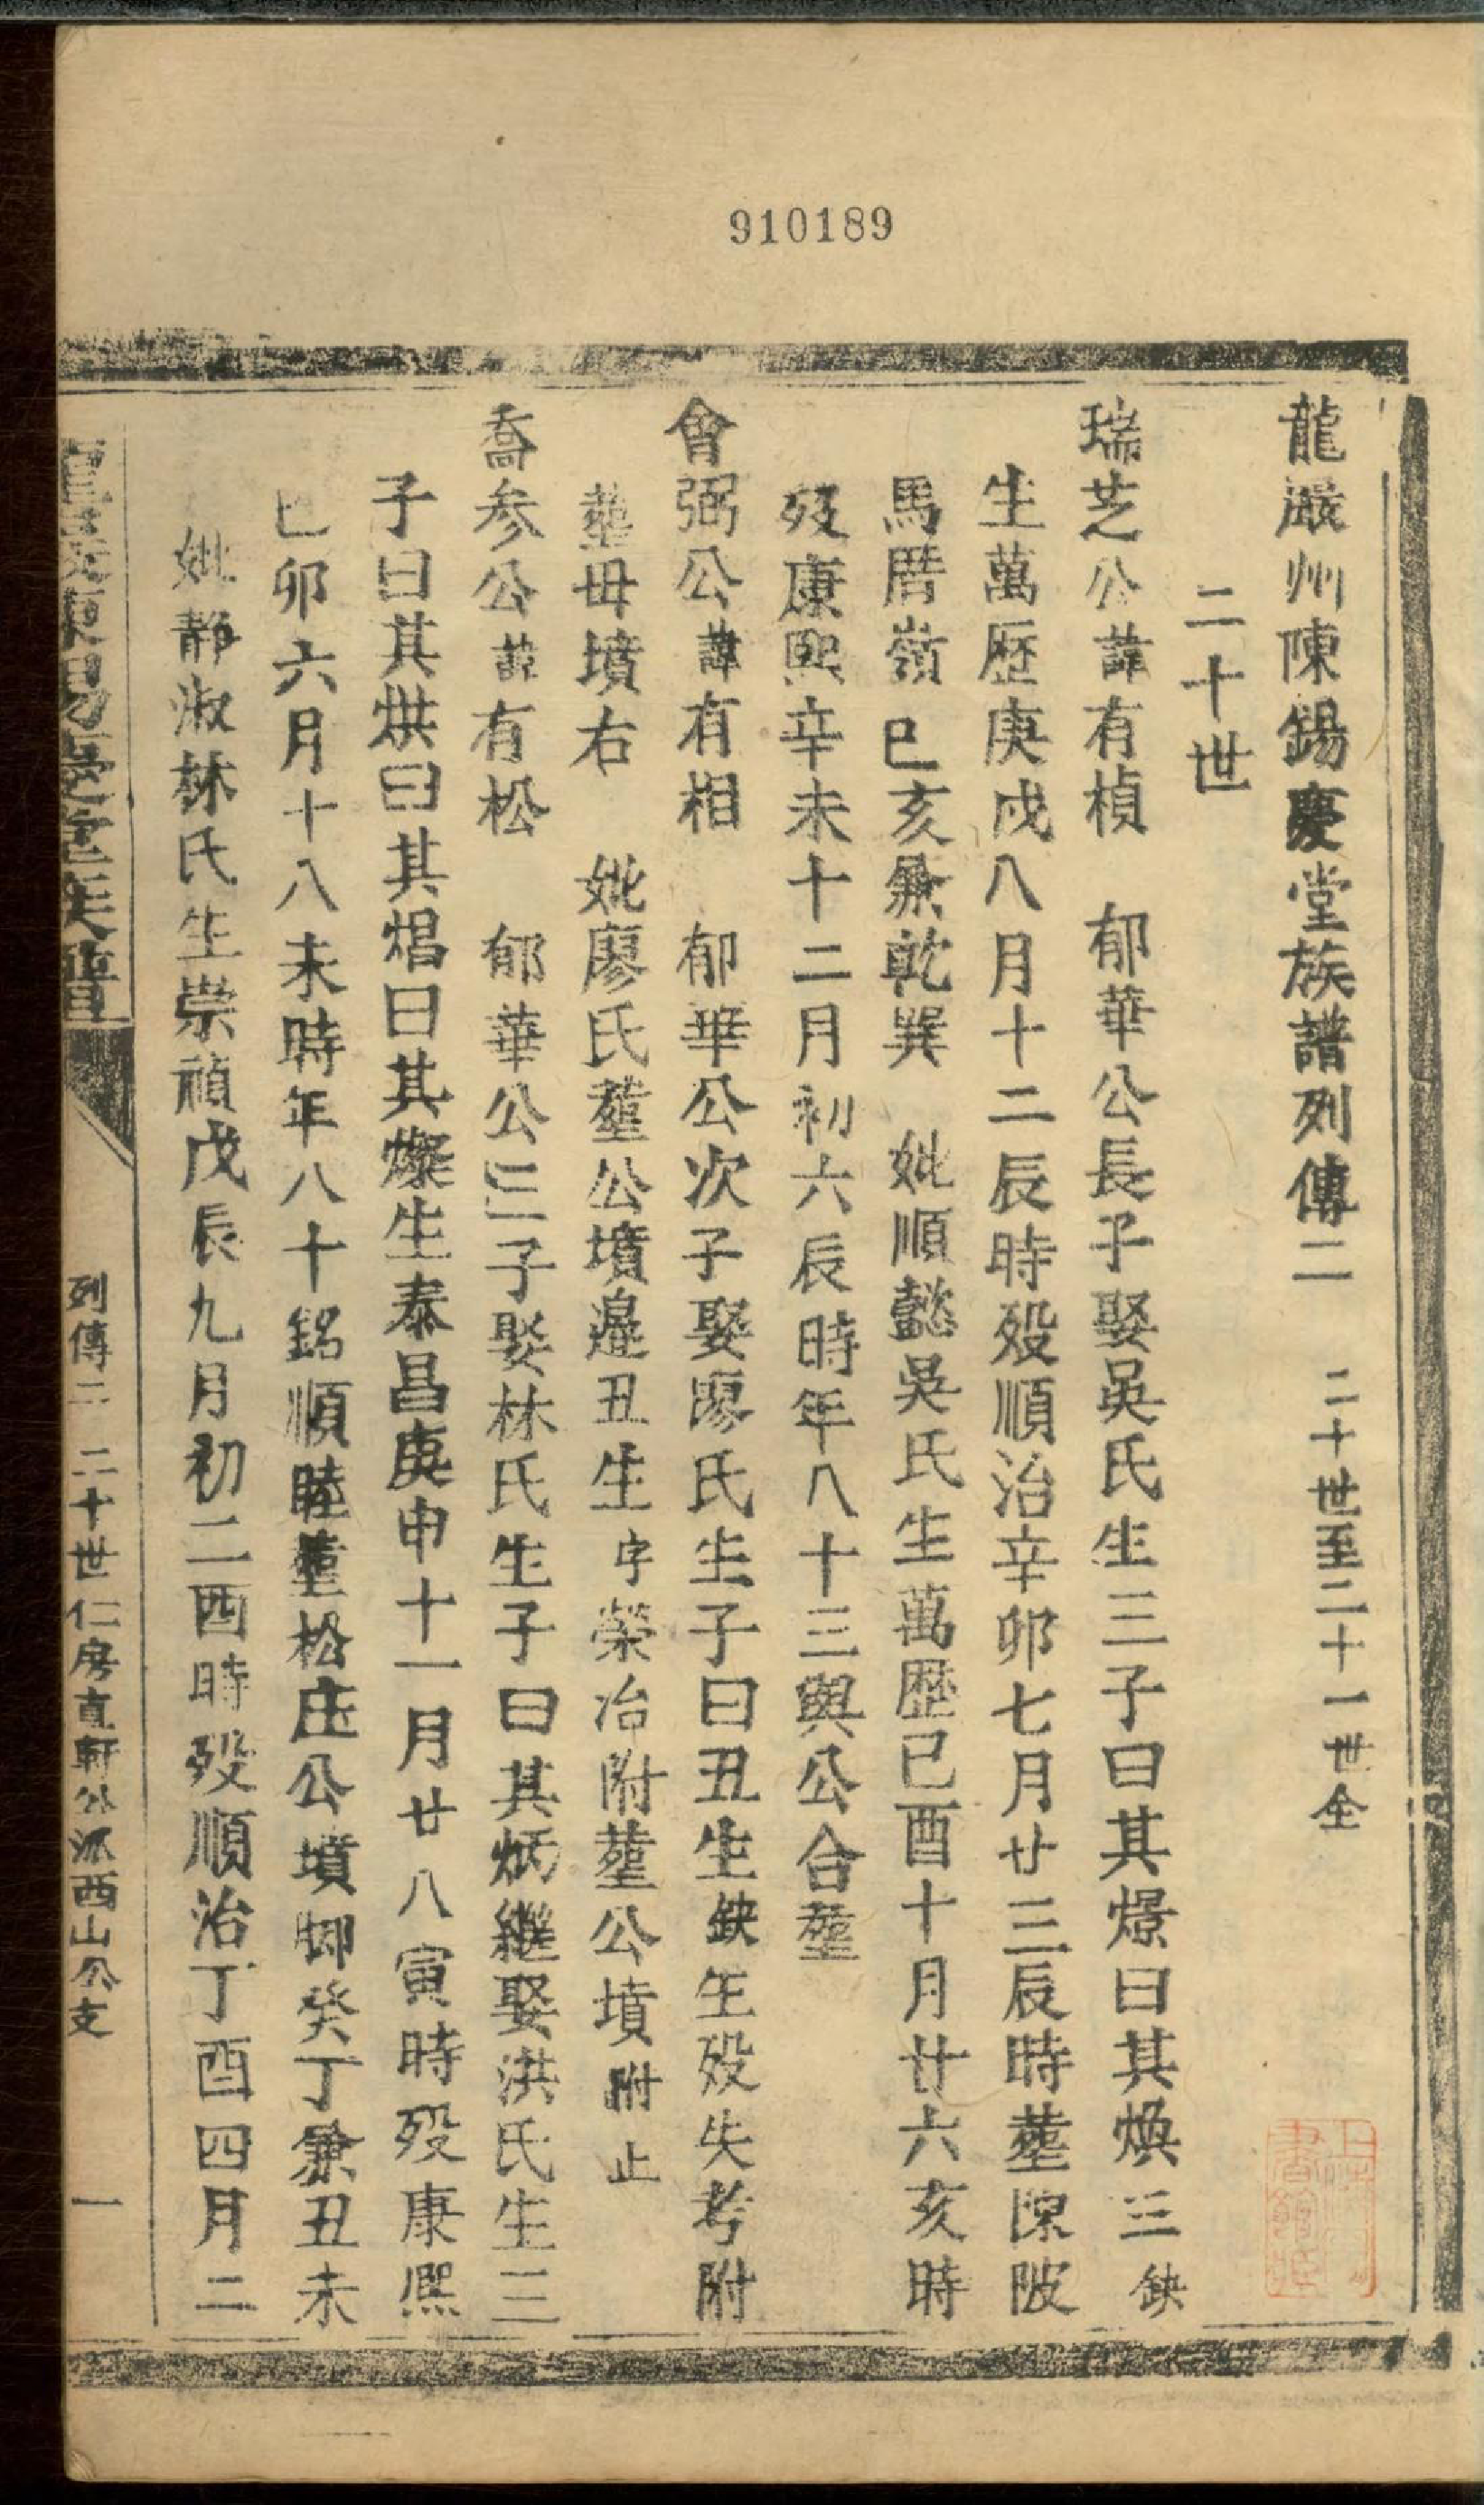 910189
龍巖州陳錫慶堂族譜列傳二 二十世至二十一世全
二十世
瑞芝公諱有楨 郁華公長子娶吳氏生三子曰其燝曰其煥三缺
生萬歷庚戌八月十二辰時殁順治辛卯七月廿三辰時塟陳陂
馬厝嶺 巳亥兼乾巽 妣順懿吳氏生萬歷已酉十月廿六亥時
殁康熙辛未十二月初六辰時年八十三與公合塟
曾弼公諱有相 郁華公次子娶廖氏生子曰丑生缺生殁失考附
塟毋墳右 妣廖氏塟公墳邉丑生字榮冶附塟公墳附止
喬參公諱有松 郁華公三子娶林氏生子曰其炳繼娶洪氏生三
子曰其烘曰其焻曰其燦生泰昌庚申十一月廿八寅時殁康熙
已卯六月十八未時年八十銘順睦塟松庄公墳脚癸丁兼丑未
妣靜淑林氏生崇禎戊辰九月初二酉時殁順治丁酉四月二
列傳二 二十世仁房直軒公派西山公支 一